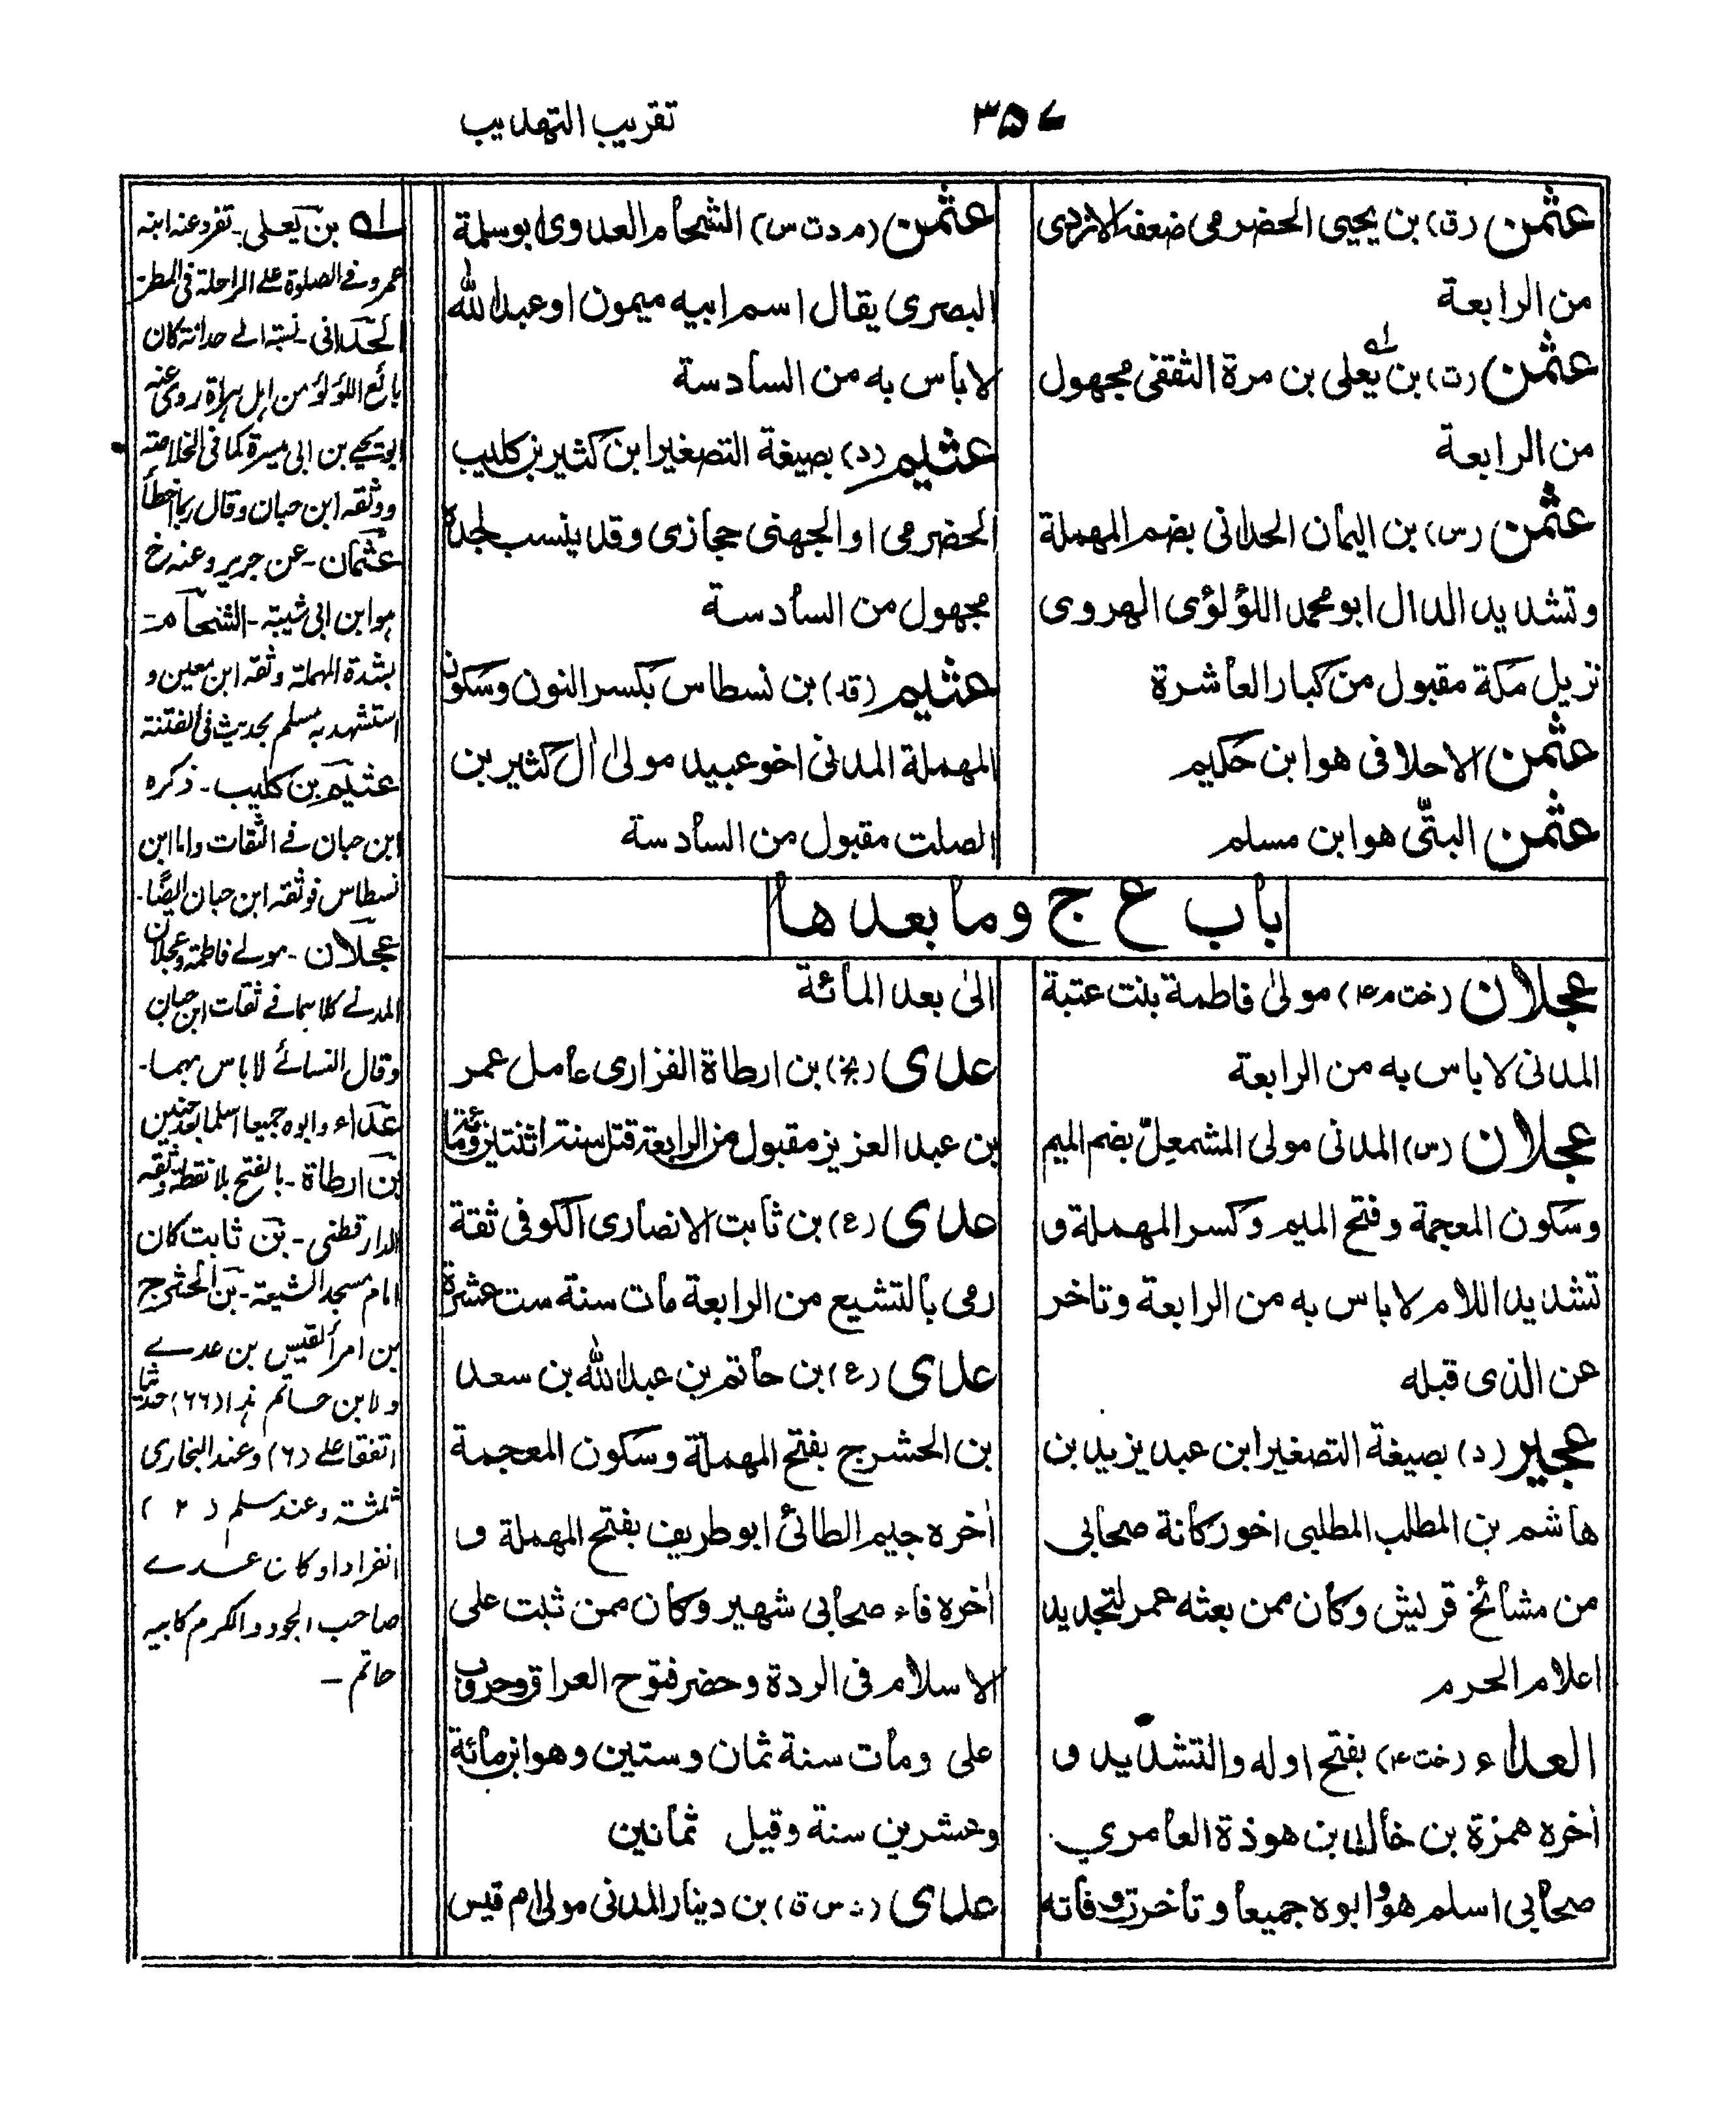 تقريب التهذيب
٣٥٧
عثمن (ق) بن يحيى الحضرمى ضعفه الازدى
من الرابعة
عثمن (ت) بن يعلى بن مرة الثقفى مجهول
من الرابعة
عثمن (س) بن اليمان الحدانى بضم المهملة
وتشديد الدال ابو محمد اللؤلؤى الهروى
نزيل مكة مقبول من كبار العاشرة
عثمن الاحلافى هو ابن حكيم
عثمن البتّى هو ابن مسلم
عثمن (م د ت س) الشحام العدوى ابو سلمة
البصرى يقال اسم ابيه ميمون او عبد الله
لاباس به من السادسة
عثيم (د) بصيغة التصغير ابن كثير بن كليب
الحضرمى او الجهنى حجازى وقد ينسب لجده
مجهول من السادسة
عثيم (قد) بن نسطاس بكسر النون وسكون
المهملة المدنى اخو عبيد مولىٰ اٰل كثير بن
الصلت مقبول من السادسة
باب ع ج وما بعدها
عجلان (خت م ٤) مولىٰ فاطمة بنت عتبة
المدنى لا باس به من الرابعة
عجلان (س) المدنى مولى المشمعلّ بضم الميم
وسكون المعجمة وفتح الميم وكسر المهملة و
تشديد اللام لا باس به من الرابعة وتاخر
عن الذى قبله
عجير (د) بصيغة التصغير ابن عبد يزيد بن
هاشم بن المطلب المطلبى اخو ركانة صحابى
من مشائخ قريش وكان ممن بعثه عمر لتجديد
اعلام الحرم
العداء (خت ٤) بفتح اوله والتشديد و
اٰخره همزة بن خالد بن هوذة العامري
صحابى اسلم هو وابوه جميعا وتأخرت وفاته
الىٰ بعد المائة
عدى (بخ) بن ارطاة الفزارى عامل عمر
بن عبد العزيز مقبول من الرابعة قتل سنة اثنتين ومائة
عدى (ع) بن ثابت الانصارى الكوفى ثقة
رمى بالتشيع من الرابعة مات سنة ست عشرة
عدى (ع) بن حاتم بن عبد الله بن سعد
بن الحشرج بفتح المهملة وسكون المعجمة
اٰخره جيم الطائى ابو طريف بفتح المهملة و
اٰخره فاء صحابى شهير وكان ممن ثبت على
الاسلام فى الردة وحضر فتوح العراق وحروب
على ومات سنة ثمان وستين وهو ابن مائة
وعشرين سنة وقيل ثمانين
عدى (س ق) بن دينار المدنى مولى ام قيس
له بن يعلى - تفرد عنه ابنه
عمرو فے الصلوة علے الراحلة فى المطر -
الحدانى - نسبة الے حدانة كان
بائع اللؤلؤ من اهل هراة روى عنه
ابو يحيے بن ابى ميسرة كما فى الخلاصة
ووثقه ابن حبان وقال ربما اخطأ
عثمان - عن جرير وعنه خ
هو ابن ابى شيبة - الشحام -
بشدة المهملة وثقه ابن معين و
استشهد به مسلم بحديث فى الفتنة
عثيم بن كليب - ذكره
ابن حبان فے الثقات واما ابن
نسطاس فوثقه ابن حبان ايضًا -
عجلان - مولے فاطمة وعجلان
المدنے كلاهما فے ثقات ابن حبان
وقال النسائے لا باس بهما -
عداء وابوه جميعا اسلما بعد حنين
بن ارطاة - بالفتح بلا نقطة وثقه
الدارقطنى - بن ثابت كان
امام مسجد الشيعة - بن الحشرج
بن امرأ القيس بن عدے
ولابن حاتم هذا (٦٦) حديثا
اتفقا علے (٦) وعند البخارى
ثلثة وعند مسلم (٢)
انفرادا وكان عدے
صاحب الجود والكرم كابيه
حاتم -